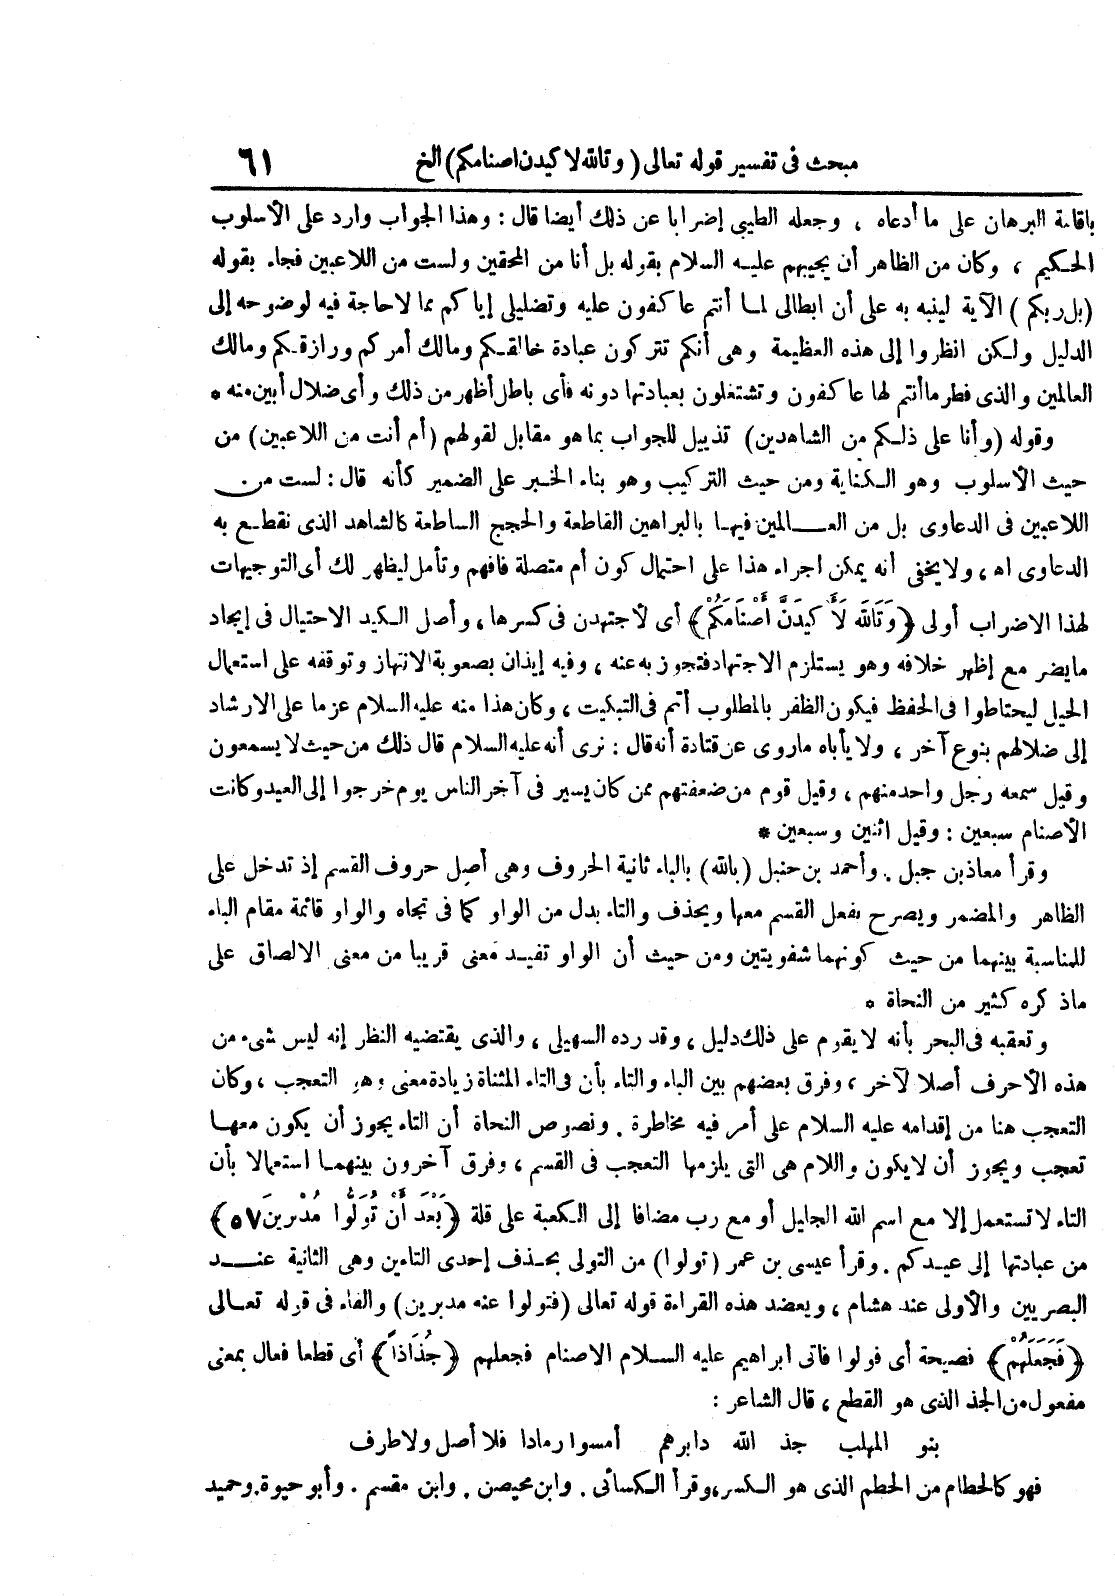 مبحث فى تفسير قوله تعالى (وتالله لاكيدن اصنامكم) الخ ٦١
باقامة البرهان على ما أدعاه ، وجعله الطيبى إضرابا عن ذلك أيضا قال : وهذا الجواب وارد على الأسلوب
الحكيم ، وكان من الظاهر أن يجيبهم عليه السلام بقوله بل أنا من المحقين ولست من اللاعبين فجاء بقوله
(بل ربكم) الآية لينبه به على أن ابطالى لما أنتم عاكفون عليه وتضليلى إياكم مما لاحاجة فيه لوضوحه إلى
الدليل ولكن انظروا إلى هذه العظيمة وهى أنكم تتركون عبادة خالقكم ومالك أمركم ورازقكم ومالك
العالمين والذى فطر ما أنتم لها عاكفون وتشتغلون بعبادتها دونه فأى باطل أظهر من ذلك وأى ضلال أبين منه *
وقوله (وأنا على ذلكم من الشاهدين) تذييل للجواب بما هو مقابل لقولهم (أم أنت من اللاعبين) من
حيث الأسلوب وهو الكناية ومن حيث التركيب وهو بناء الخبر على الضمير كأنه قال : لست من
اللاعبين فى الدعاوى بل من العالمين فيها بالبراهين القاطعة والحجج الساطعة كالشاهد الذى نقطع به
الدعاوى اه ، ولايخفى أنه يمكن اجراء هذا على احتمال كون أم متصلة فافهم وتأمل ليظهر لك أى التوجيهات
لهذا الاضراب أولى ﴿وَتَاللَّه لَأَكيدَنَّ أَصْنَامَكُمْ﴾ أى لأجتهدن فى كسرها ، وأصل الكيد الاحتيال فى إيجاد
مايضر مع إظهر خلافه وهو يستلزم الاجتهاد فتجوز به عنه ، وفيه إيذان بصعوبة الانتهاز وتوقفه على استعمال
الحيل ليحتاطوا فى الحفظ فيكون الظفر بالمطلوب أتم فى التبكيت ، وكان هذا منه عليه السلام عزما على الارشاد
إلى ضلالهم بنوع آخر ، ولا يأباه ماروى عن قتادة أنه قال : نرى أنه عليه السلام قال ذلك من حيث لا يسمعون
وقيل سمعه رجل واحد منهم ، وقيل قوم من ضعفتهم ممن كان يسير فى آخر الناس يوم خرجوا إلى العيد وكانت
الأصنام سبعين : وقيل اثنين وسبعين *
وقرأ معاذ بن جبل . وأحمد بن حنبل (بالله) بالباء ثانية الحروف وهى أصل حروف القسم إذ تدخل على
الظاهر والمضمر ويصرح بفعل القسم معها ويحذف والتاء بدل من الواو كما فى تجاه والواو قائمة مقام الباء
للمناسبة بينهما من حيث كونهما شفويتين ومن حيث أن الواو تفيد معنى قريبا من معنى الالصاق على
ماذكره كثير من النحاة *
وتعقبه فى البحر بأنه لا يقوم على ذلك دليل ، وقد رده السهيلى ، والذى يقتضيه النظر إنه ليس شىء من
هذه الأحرف أصلا لآخر ، وفرق بعضهم بين الباء والتاء بأن فى التاء المثناة زيادة معنى وهو التعجب ، وكان
التعجب هنا من إقدامه عليه السلام على أمر فيه مخاطرة . ونصوص النحاة أن التاء يجوز أن يكون معها
تعجب ويجوز أن لايكون واللام هى التى يلزمها التعجب فى القسم ، وفرق آخرون بينهما استعمالا بأن
التاء لا تستعمل إلا مع اسم الله الجليل أو مع رب مضافا إلى الكعبة على قلة ﴿بَعْدَ أَنْ تُوَلُّوا مُدْبرينَ ٥٧﴾
من عبادتها إلى عيدكم . وقرأ عيسى بن عمر (تولوا) من التولى بحذف إحدى التاءين وهى الثانية عند
البصريين والأولى عند هشام ، ويعضد هذه القراءة قوله تعالى (فتولوا عنه مدبرين) والفاء فى قوله تعالى
﴿فَجَعَلَهُمْ﴾ فصيحة أى فولوا فاتى ابراهيم عليه السلام الاصنام فجعلهم ﴿جُذَاذاً﴾ أى قطعا فعال بمعنى
مفعول من الجذ الذى هو القطع ، قال الشاعر :
بنو المهلب جذ الله دابرهم أمسوا رمادا فلا أصل ولا طرف
فهو كالحطام من الحطم الذى هو الكسر ، وقرأ الكسائى . وابن محيصن . وابن مقسم . وأبو حيوة . وحميد